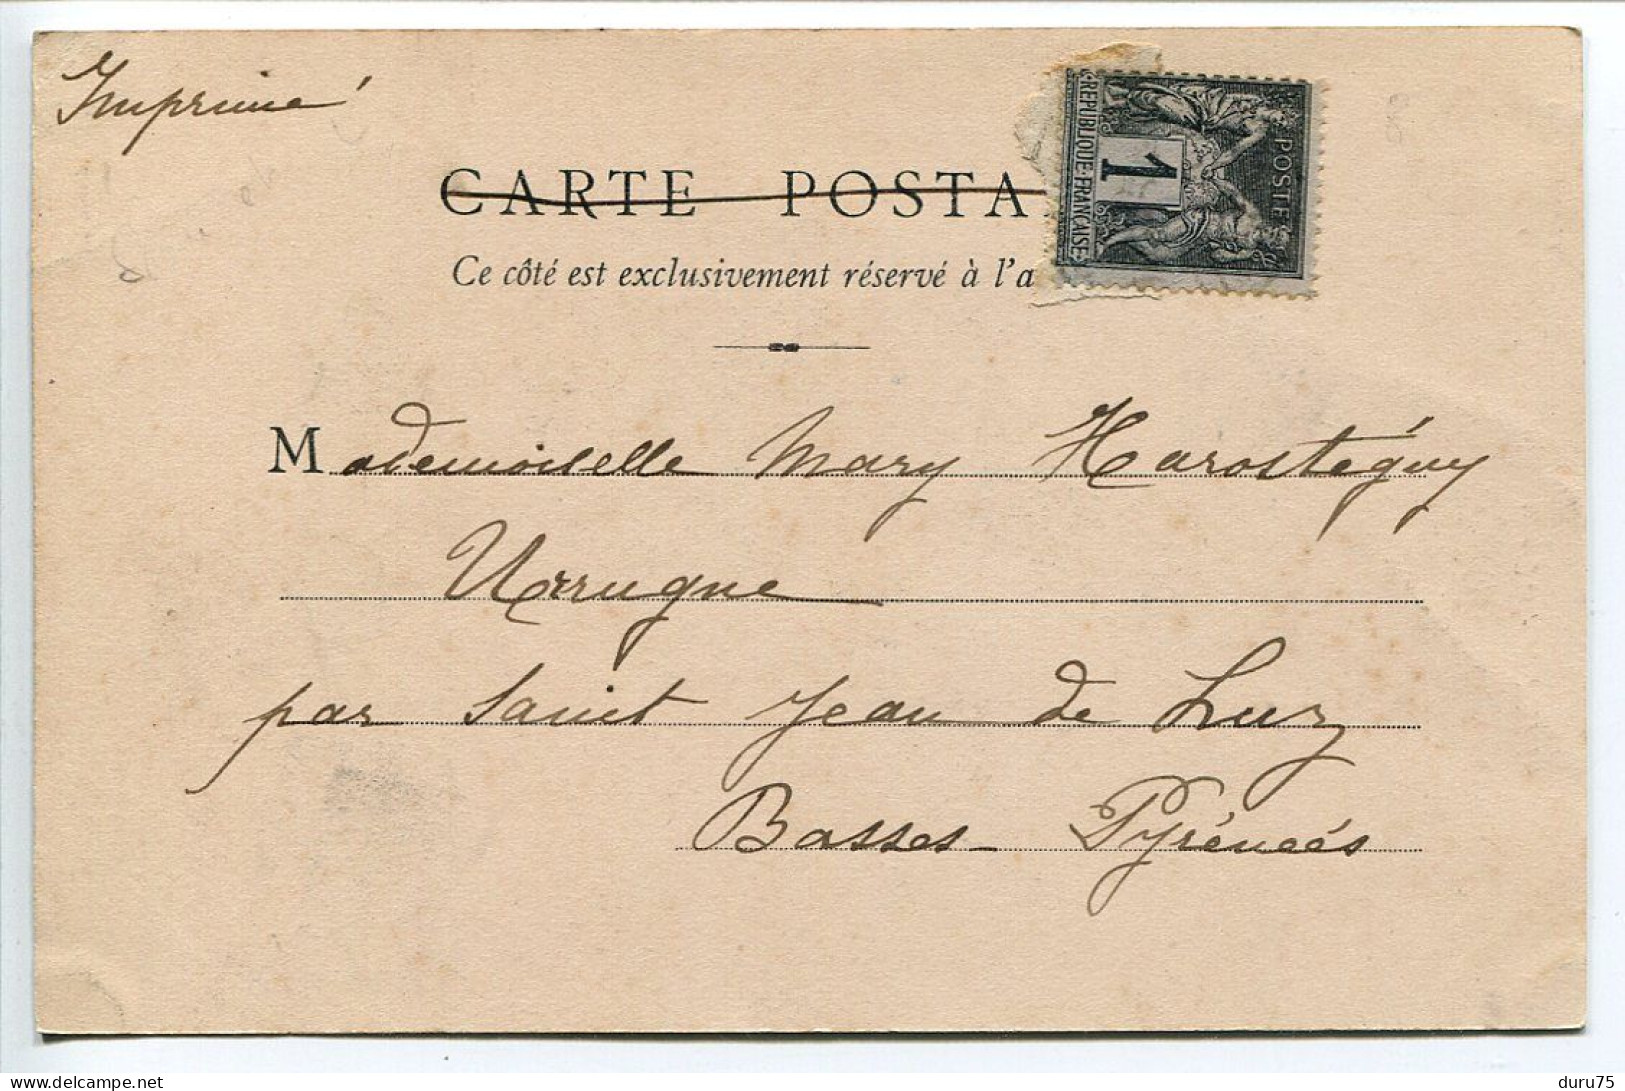 Imprimé
CARTE POSTA
Ce côté est exclusivement réservé à l'a
RÉPUBLIQUE FRANÇAISE
1
POSTE
Mademoiselle Mary Harostéguy
Urrugne
par Saint Jean de Luz
Basses-Pyrénées
delcampe.net
duru75